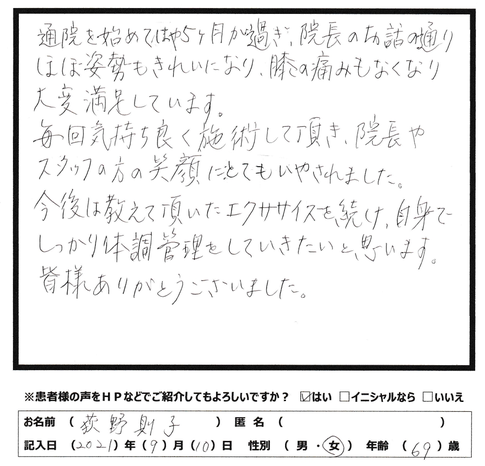 通院を始めてはや5ヶ月が過ぎ、院長のお話の通り
ほぼ姿勢もきれいになり、膝の痛みもなくなり
大変満足しています。
毎回気持ち良く施術して頂き、院長や
スタッフの方の笑顔にとてもいやされました。
今後は教えて頂いたエクササイズを続け、自身で
しっかり体調管理をしていきたいと思います。
皆様ありがとうございました。
※患者様の声をHPなどでご紹介してもよろしいですか？ ☑はい □イニシャルなら □いいえ
お名前 （荻野則子） 匿名（ ）
記入日（2021）年（9）月（10）日 性別（男・女）年齢（69）歳